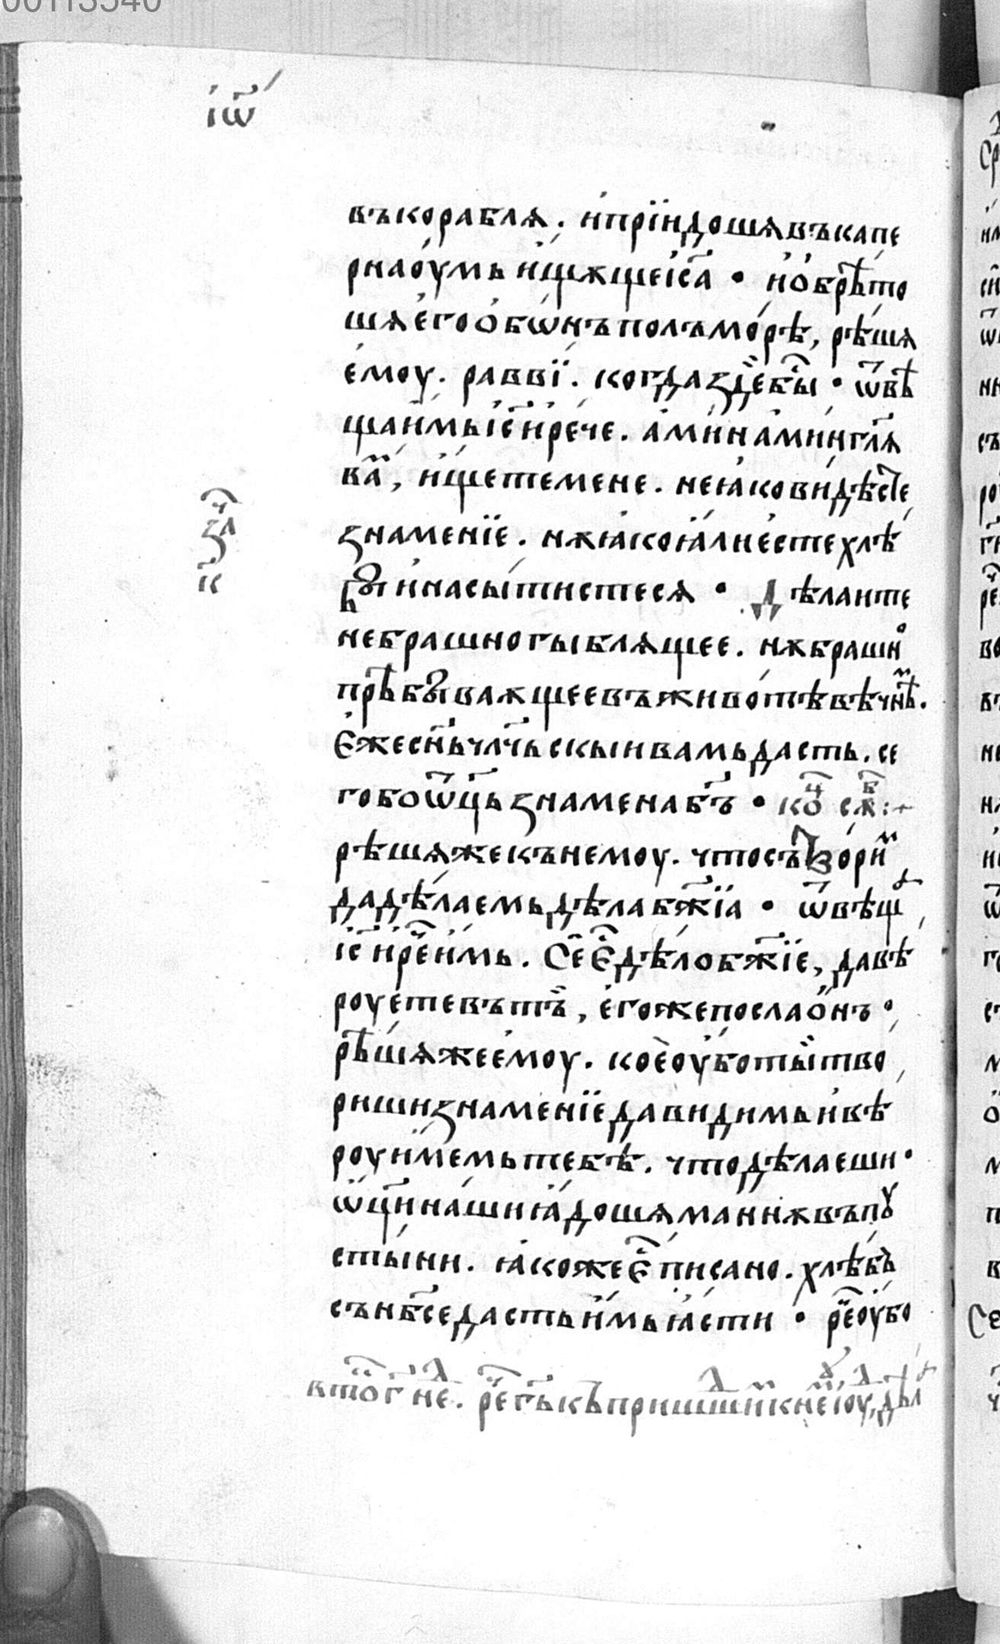 00113540
іѡ҃
въкораблѧ. и҆прїидошѧвъкапе
рнаоу́мь и҆щѫщеі҆с҃а • и҆ѡбрѣ́то
шѧе҆гоѻ҆бѡ́нъполъмо́рѣ, рѣ́шѧ
е҆моу. раввї. когдаꙁдебы́ • ѿвѣ
щаи҆мьі҆с҃ и҆ре́че. а҆ми́н а҆ми́нгл҃ѧ
ва́м, и҆́щетемене. неꙗ҆ковидѣсте
ꙁнаменїе. нѫꙗ҆коꙗ҆лиестехлѣ
бы и҆насы́тистесѧ • Дѣлаите
небрашногыблѧщее. нѫбрашно
прѣбываѫщеевъживо́тѣвѣчнѣм.
Е҆жесн҃ьчл҃чьскыивамьдасть. се
гобоѿц҃ьꙁнаменаб҃ъ • ко҃ц сѫв:+
рѣшѧжекънемоу. чтосътвори́м
дадѣ́лаемьдѣлабж҃їа • ѿвѣща
і҆с҃ и҆рече҆и҆мь. Се҆ е҆с дѣ́лобж҃їе, давѣ
роуетевътъ, е҆гожепослао́нъ •
рѣ́шѧжее҆моу. коѐоу҆боты̀тво
ришиꙁнаменїедавидимьи҆вѣ
роуи҆мемьтебѣ. чтодѣлаеши •
ѿц҃и на́шиꙗ҆дошѧманнѫвъпꙋ
стыни. ꙗ҆коже е҆с пи́сано. хлѣ́бъ
сън҃бседастьи҆мьꙗ҆сти • ре҆оу́бо
вто г҃ не. ре гь къпришшимкнемꙋ іоу,дѣл
ꙁач
к҃